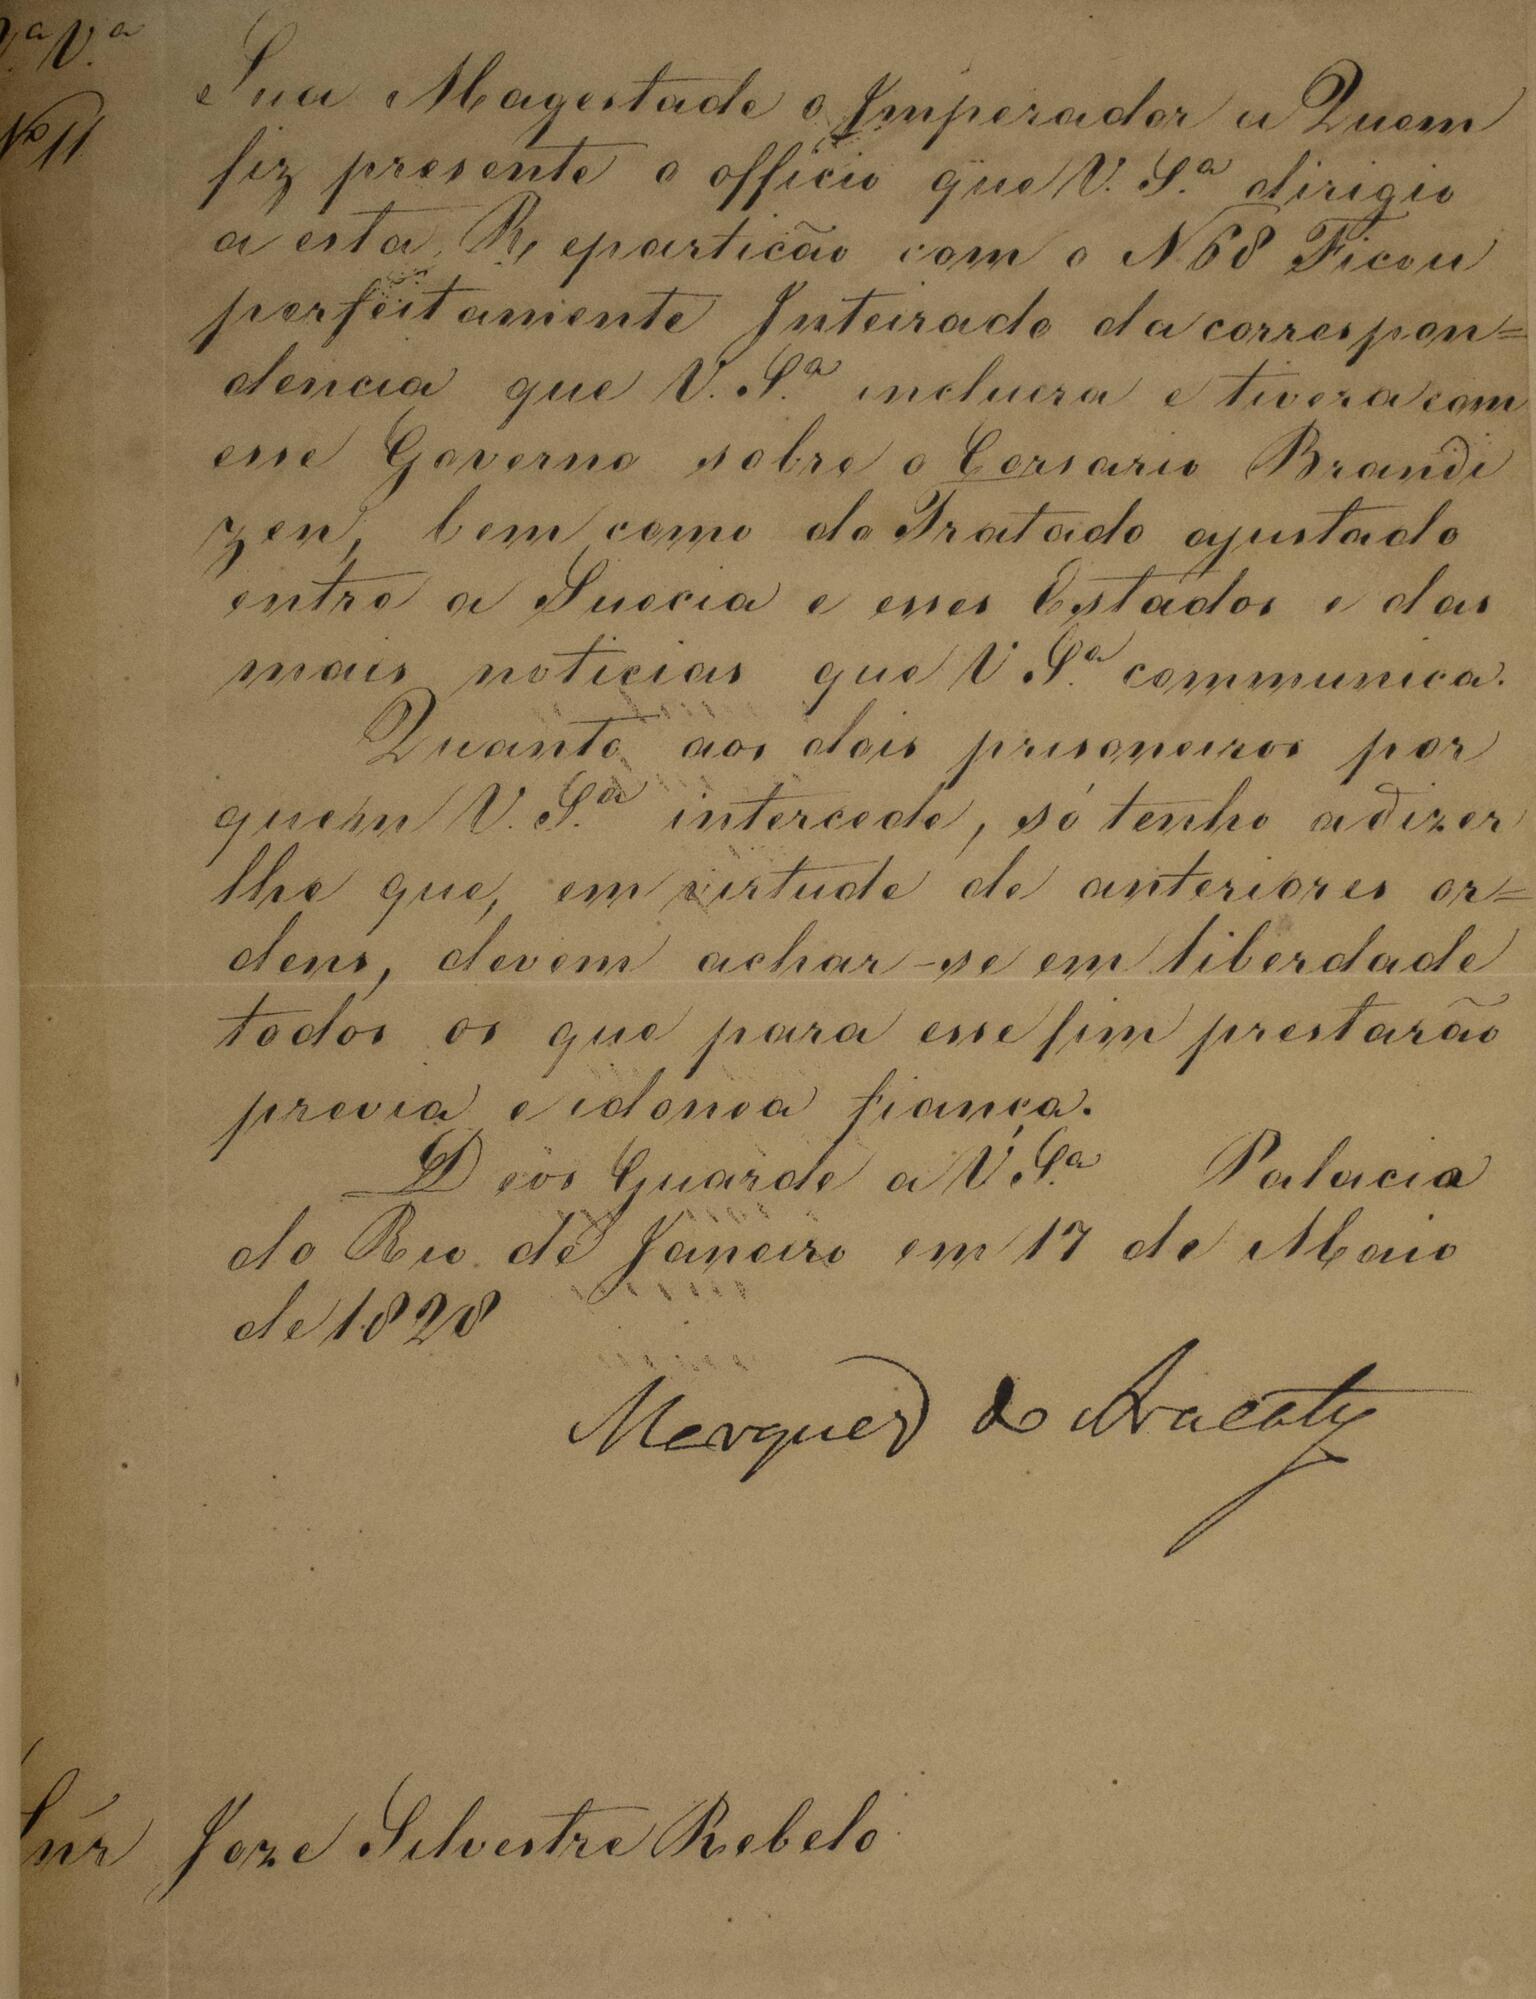 2.ª V.ª
Nº 11
Sua Magestade o Imperador a Quem
fiz presente o officio que V. S.ª dirigio
a esta Repartição com o N 68 Ficou
perfeitamente Inteirado da correspon=
dencia que V. S.ª incluira e tivera com
esse Governo sobre o Corsario Brandi
zen, bem como do Tratado ajustado
entre a Suecia e esses Estados e das
mais noticias que V S.ª communica.
Quanto aos dois prisoneiros por
quem V. S.ª intercede, só tenho a dizer
lhe que, em virtude de anteriores or=
dens, devem achar-se em liberdade
todos os que para esse fim prestarão
previa e idonea fiança.
Deos Guarde a V. S.ª Palacio
do Rio de Janeiro em 17 de Maio
de 1828
Marquez de Aracaty
Snr Joze Silvestre Rebelo